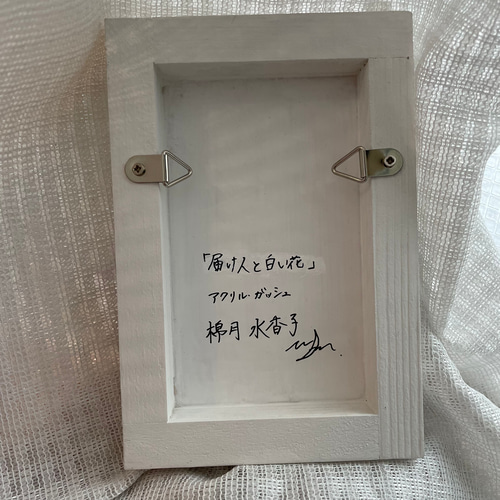 「届け人と白い花」
アクリル・ガッシュ
棉月 水香子